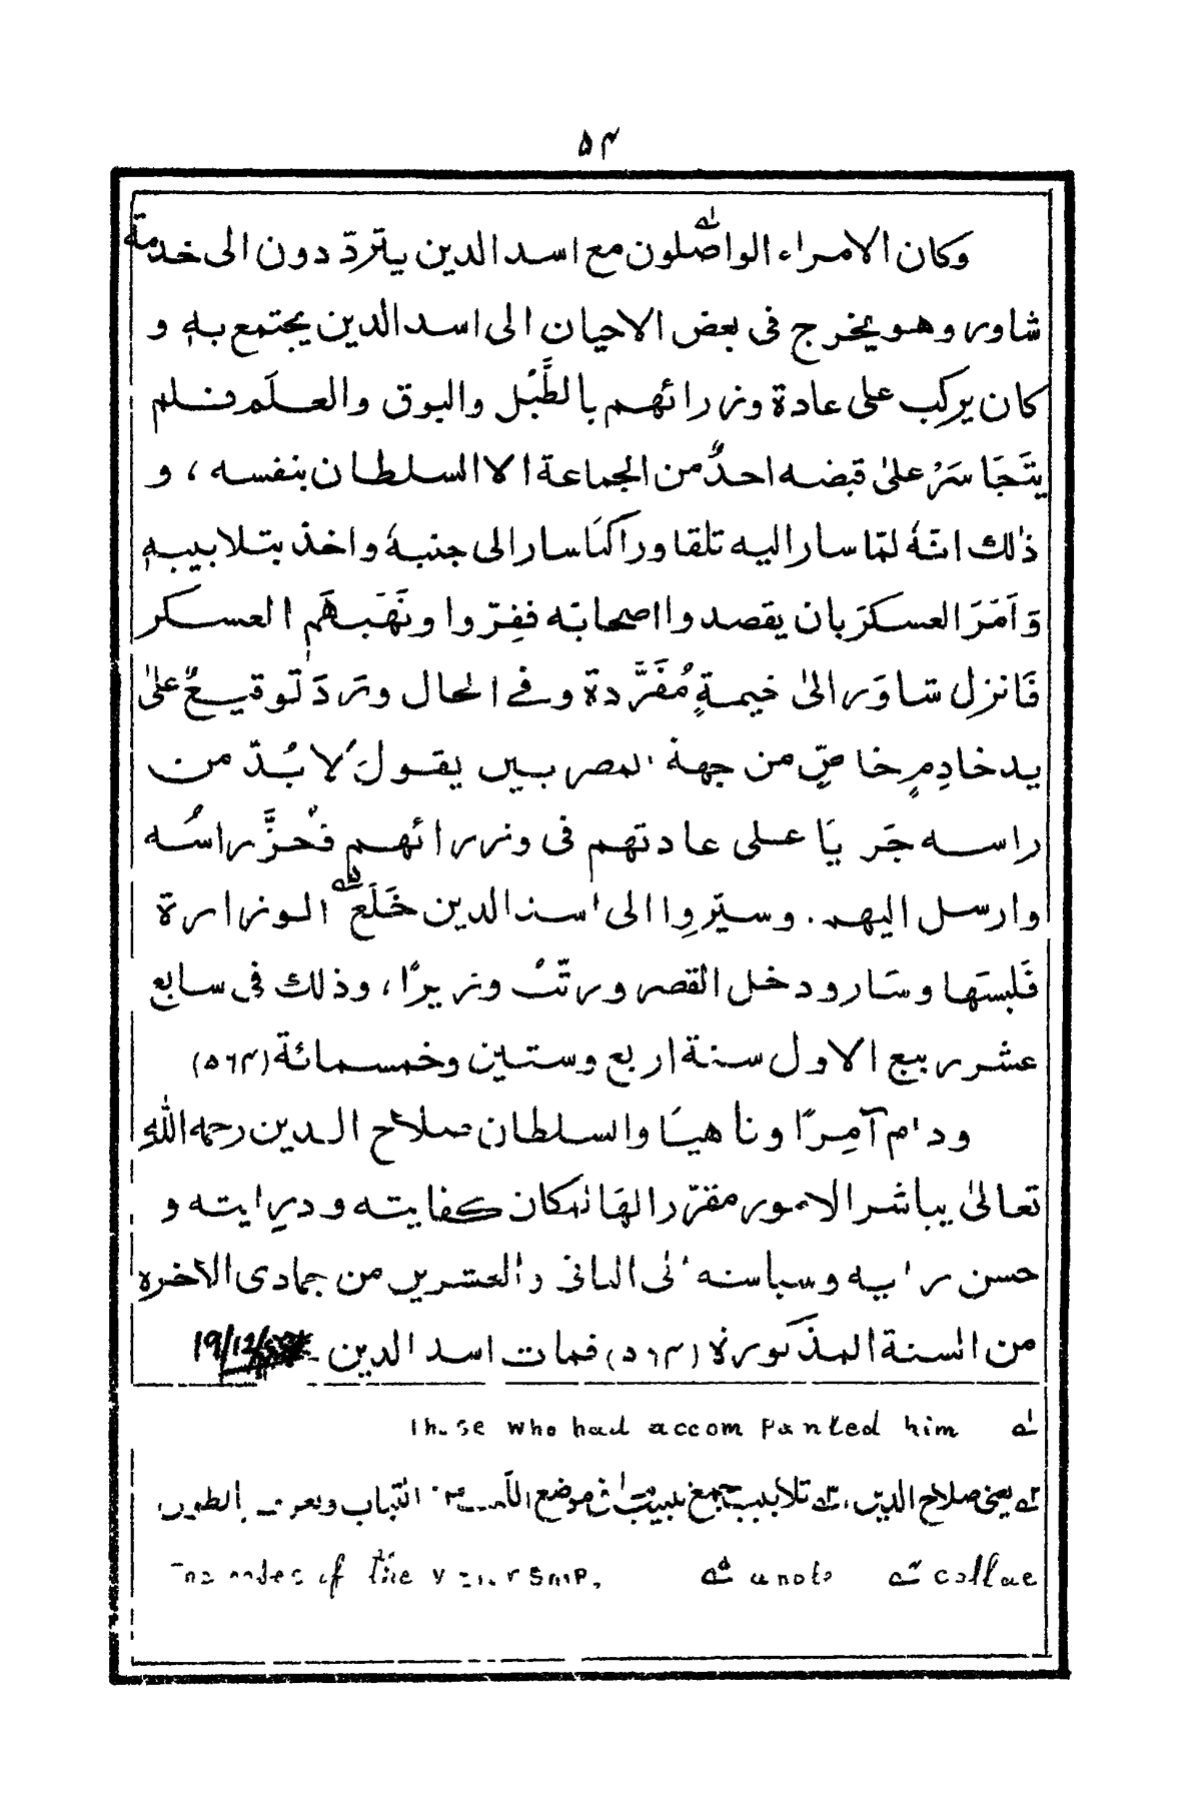 ۵۴
وكان الامراء الواصلون مع اسد الدين يتردّدون الى خدمة
شاور وهو يخرج فى بعض الاحيان الى اسد الدين يجتمع به و
كان يركب على عادة وزرائهم بالطَّبْل والبوق والعلَم فلم
يتَجَاسَرْ على قبضه احدٌ من الجماعة الا السلطان بنفسه ، و
ذٰلك انّهٗ لمّا سار اليه تلقا وراكبًا سار الى جنبهٗ واخذ بتلابيبهٖ
وَاَمَرَ العسكرَ بان يقصدوا اصحابَه ففِرّوا ونَهَبهَم العسكر
فَانزل شاوَر الىٰ خيمةٍ مُفَرَّدة وفے الحال ورَدَ توقيعٌ علىٰ
يد خادِمٍ خاصٍّ من جهة المصريين يقول لَا بُدّ من
راسه جَريَا على عادتهم فى وزرائهم فحُزَّ راسُه
وارسل اليهم . وسيّروا الى اسد الدين خَلَعَ الوزارة
فَلبسَها وسَار ودخل القصر ورتّبُ وزيرًا ، وذلك فى سابع
عشر ربيع الاول سنة اربع وستين وخمسمائة (۵۶۴)
ودام آمِرًا وناهيًا والسلطان صلاح الدين رحمه اللّٰه
تعالىٰ يباشر الامور مقرّرا لهَا لمكان كفايته ودرايته و
حسن رايه وسياسته الى الثانى والعشرين من جمادى الاخره
من السنة المذكورة (۵۶۴) فمات اسد الدين
19/12/
۱ه Those who had accom Panied him
۲ه يعنى صلاح الدين ۳ه تلابيب جمع
۴ه collae ۵ه unote of the